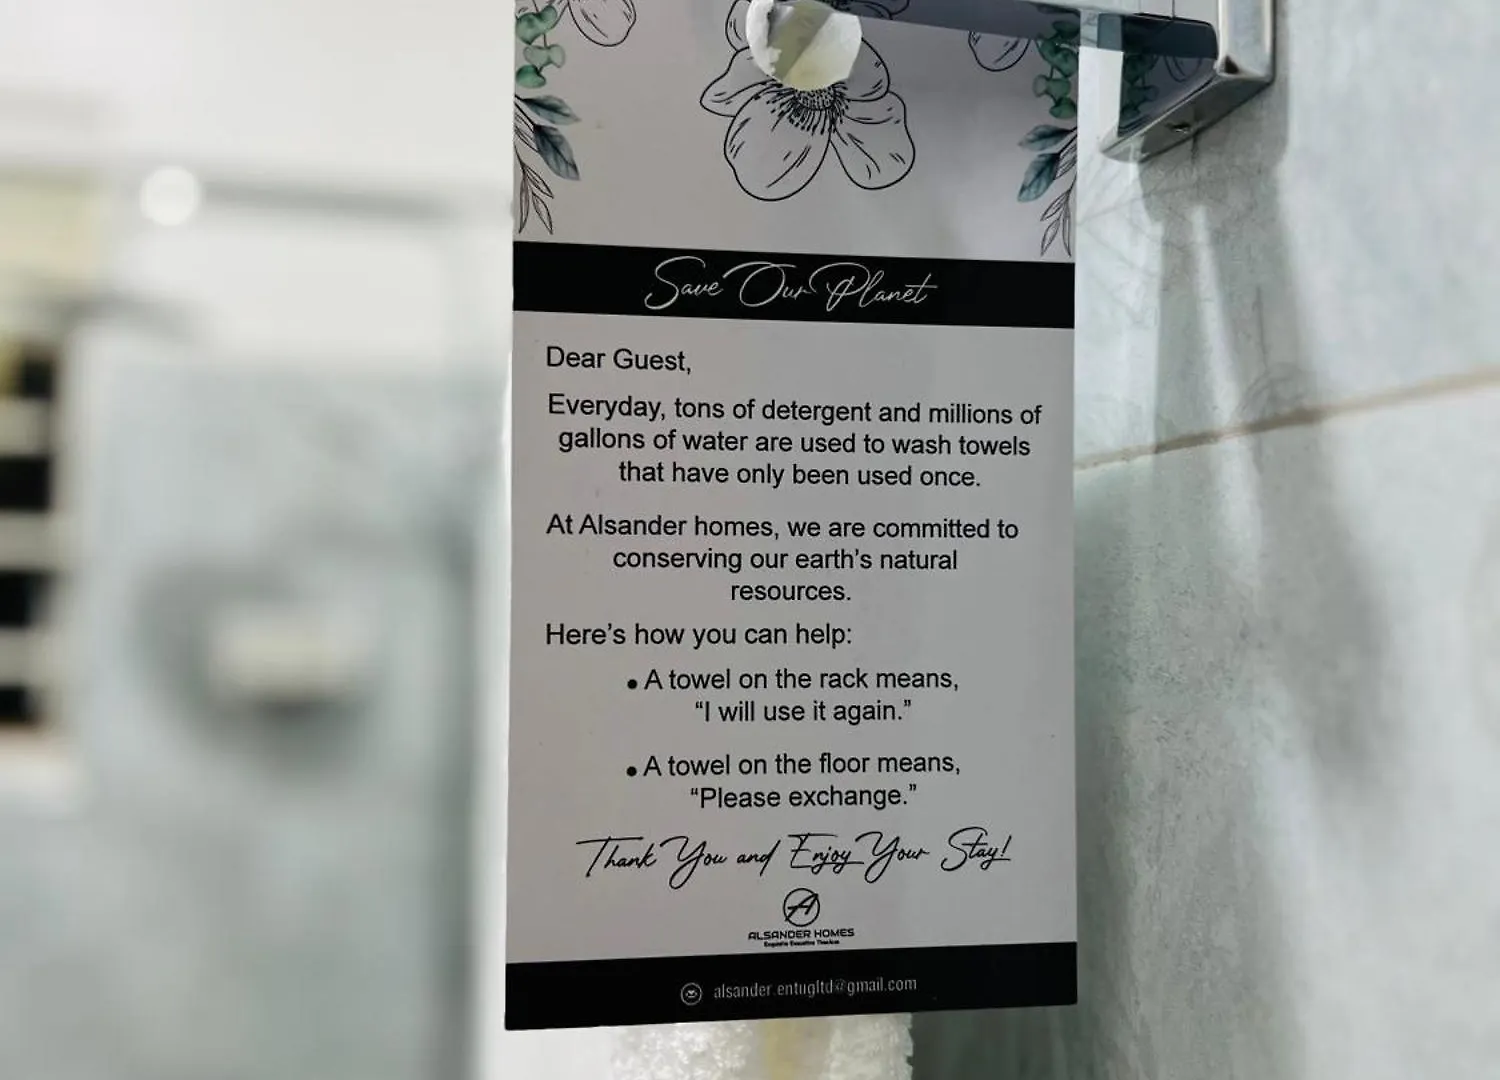 Save Our Planet
Dear Guest,
Everyday, tons of detergent and millions of
gallons of water are used to wash towels
that have only been used once.
At Alsander homes, we are committed to
conserving our earth's natural
resources.
Here's how you can help:
• A towel on the rack means,
“I will use it again.”
• A towel on the floor means,
“Please exchange.”
Thank You and Enjoy Your Stay!
ALSANDER HOMES
alsander.entugltd@gmail.com